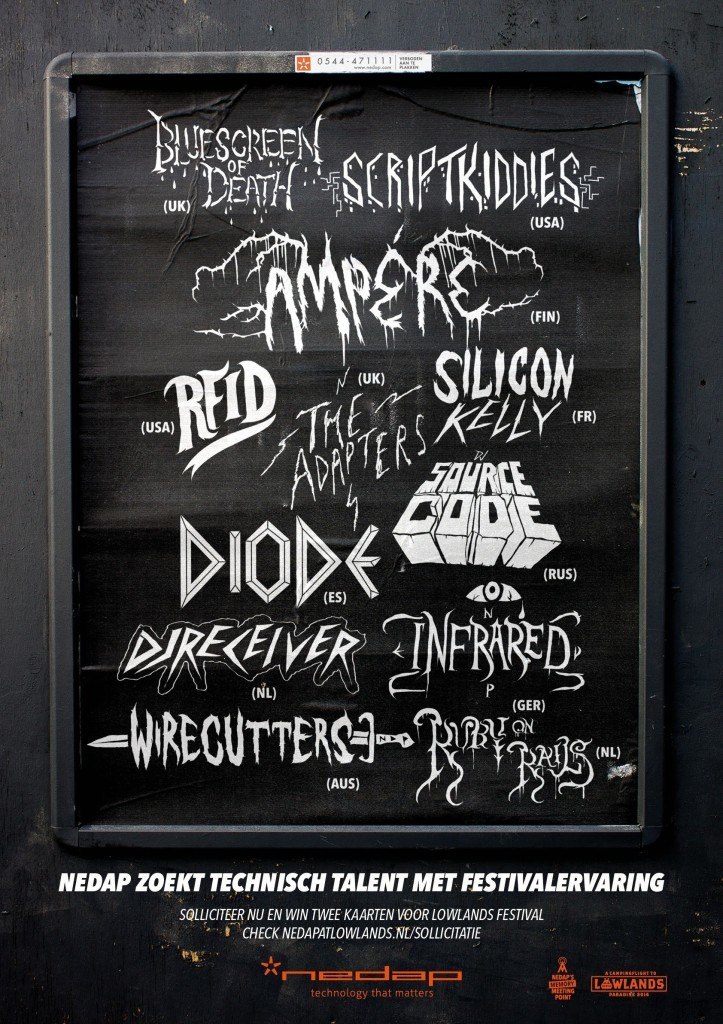 0544-471111
www.nedap.com
VERBODEN
AAN TE
PLAKKEN
BLUESCREEN
OF
DEATH
(UK)
SCRIPTKIDDIES
(USA)
AMPÉRE
(FIN)
RFID
(USA)
(UK)
THE
ADAPTERS
SILICON
KELLY
(FR)
DJ
SOURCE
CODE
(RUS)
DIODE
(ES)
DJRECEIVER
(NL)
N
INFRARED
P
(GER)
WIRECUTTERS
(AUS)
RUBY ON
RAILS
(NL)
NEDAP ZOEKT TECHNISCH TALENT MET FESTIVALERVARING
SOLLICITEER NU EN WIN TWEE KAARTEN VOOR LOWLANDS FESTIVAL
CHECK NEDAPATLOWLANDS.NL/SOLLICITATIE
nedap
technology that matters
NEDAP'S
MEMORY
MEETING
POINT
A CAMPINGFLIGHT TO
LOWLANDS
PARADISE 2014